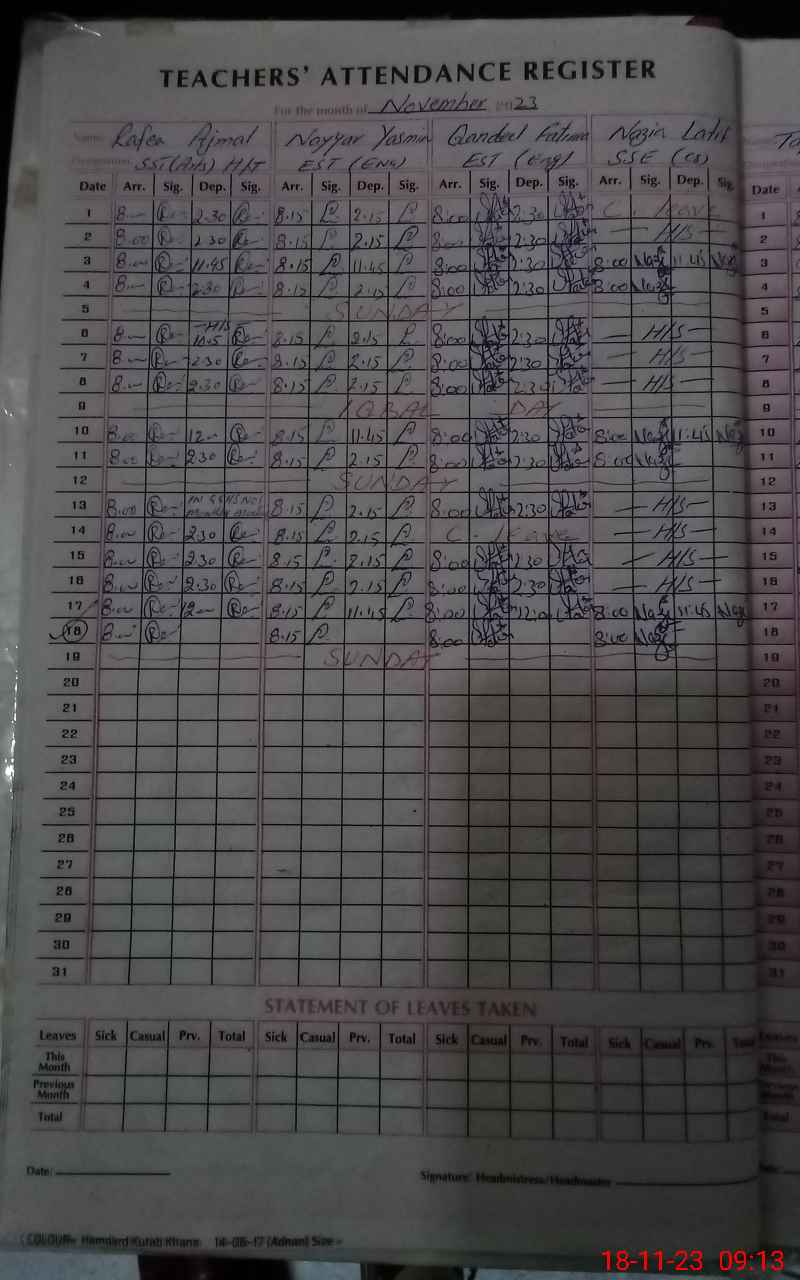 TEACHERS' ATTENDANCE REGISTER
For the month of November 2023
Name Rafea Ajmal Nayyar Yasmin Qandeel Fatima Nazia Latif
SST(Arts) H/T EST (Eng) EST (Eng) SSE (CS)
Date Arr. Sig. Dep. Sig. Arr. Sig. Dep. Sig. Arr. Sig. Dep. Sig. Arr. Sig. Dep. Sig. Date
1 8.— 2.30 8.15 2.15 8:00 2:30 C. leave 1
2 8.00 2.30 8.15 2.15 8:00 2:30 — H/S — 2
3 8.— 11.45 8.15 11.45 8:00 2:30 8:00 Naz 11:45 Naz 3
4 8.— 2.30 8.15 2.15 8:00 2:30 8:00 Naz 4
5 SUNDAY 5
6 8.— —H/S 8.15 2.15 8:00 2:30 — H/S — 6
7 8.— 2.30 8.15 2.15 8:00 2:30 — H/S — 7
8 8.— 2.30 8.15 2.15 8:00 2:30 — H/S — 8
9 IQBAL DAY 9
10 8.00 12— 8.15 11.45 8:00 2:30 8:00 Naz 11:45 Naz 10
11 8.00 2.30 8.15 2.15 8:00 2:30 8:00 Naz 11
12 SUNDAY 12
13 8.00 8.15 2.15 8:00 2:30 — H/S — 13
14 8.00 2.30 8.15 2.15 C. leave — H/S — 14
15 8.00 2.30 8.15 2.15 8:00 2:30 — H/S — 15
16 8.00 2.30 8.15 2.15 8:00 2:30 — H/S — 16
17 8.00 12— 8.15 11.45 8:00 12:00 8:00 Naz 11:45 Naz 17
18 8.— 8.15 8:00 8:00 Naz 18
19 SUNDAY 19
20 20
21 21
22 22
23 23
24 24
25 25
26 26
27 27
28 28
29 29
30 30
31 31
STATEMENT OF LEAVES TAKEN
Leaves Sick Casual Prv. Total Sick Casual Prv. Total Sick Casual Prv. Total Sick Casual Prv. Total Leaves
This Month
Previous Month
Total
Date: Signature: Headmistress/Headmaster
COLOUR= Hamdard Kutab Khana 14-06-17 (Adnan) Size =
18-11-23 09:13